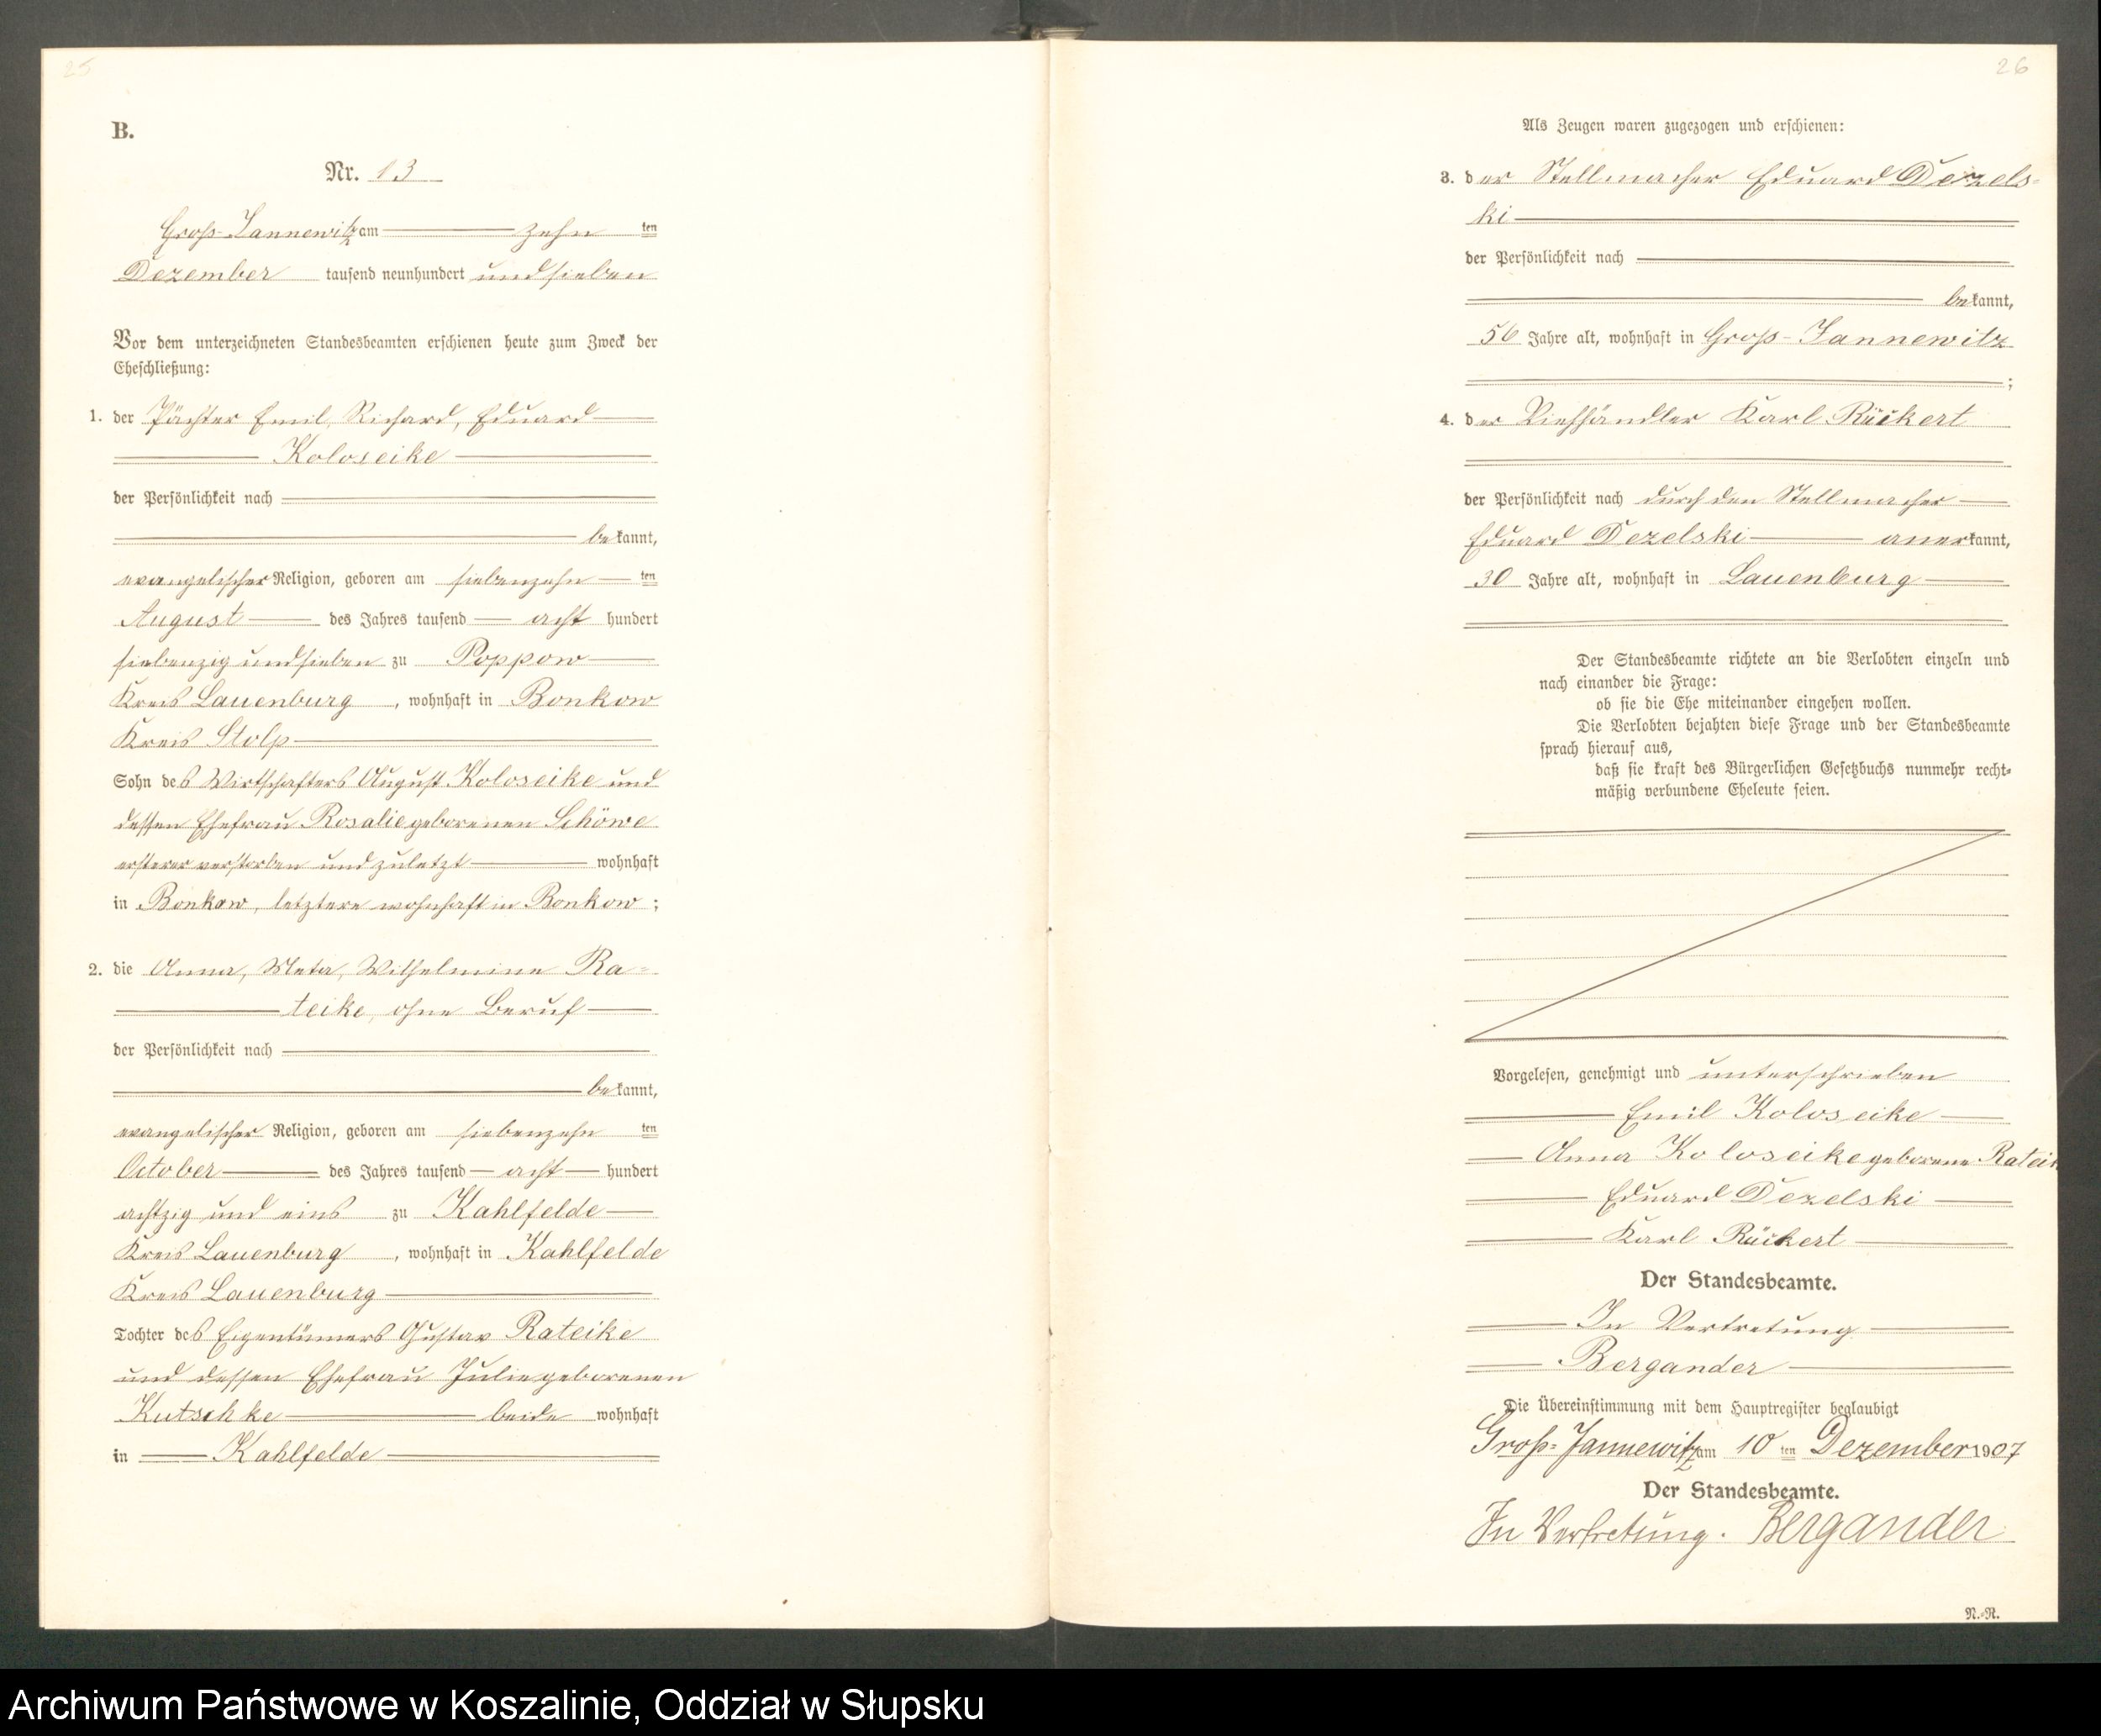 25
B.
Nr. 13
Groß-Jannewitz am zehn ten
Dezember tausend neunhundert und sieben
Vor dem unterzeichneten Standesbeamten erschienen heute zum Zweck der
Eheschließung:
1. der Pächter Emil, Richard, Eduard
Koloseike
der Persönlichkeit nach
bekannt,
evangelischer Religion, geboren am siebenzehn ten
August des Jahres tausend acht hundert
siebenzig und sieben zu Poppow
Kreis Lauenburg, wohnhaft in Bonkow
Kreis Stolp
Sohn des Wirtschafters August Koloseike und
dessen Ehefrau Rosalie geborenen Schöwe
ersterer verstorben und zuletzt wohnhaft
in Bonkow, letztere wohnhaft in Bonkow;
2. die Anna, Meta, Wilhelmine Ra-
teike, ohne Beruf
der Persönlichkeit nach
bekannt,
evangelischer Religion, geboren am siebenzehn ten
October des Jahres tausend acht hundert
achtzig und eins zu Kahlfelde
Kreis Lauenburg, wohnhaft in Kahlfelde
Kreis Lauenburg
Tochter des Eigentümers Gustav Rateike
und dessen Ehefrau Julie geborenen
Kutschke beide wohnhaft
in Kahlfelde
26
Als Zeugen waren zugezogen und erschienen:
3. der Stellmacher Eduard Dezels-
ki
der Persönlichkeit nach
bekannt,
56 Jahre alt, wohnhaft in Groß-Jannewitz
;
4. der Viehhändler Karl Rückert
der Persönlichkeit nach durch den Stellmacher
Eduard Dezelski anerkannt,
30 Jahre alt, wohnhaft in Lauenburg
Der Standesbeamte richtete an die Verlobten einzeln und
nach einander die Frage:
ob sie die Ehe miteinander eingehen wollen.
Die Verlobten bejahten diese Frage und der Standesbeamte
sprach hierauf aus,
daß sie kraft des Bürgerlichen Gesetzbuchs nunmehr recht-
mäßig verbundene Eheleute seien.
Vorgelesen, genehmigt und unterschrieben
Emil Koloseike
Anna Koloseike geborene Rateik
Eduard Dezelski
Karl Rückert
Der Standesbeamte.
In Vertretung
Bergander
Die Übereinstimmung mit dem Hauptregister beglaubigt
Groß-Jannewitz am 10 ten Dezember 1907
Der Standesbeamte.
In Vertretung. Bergander
N.-N.
Archiwum Państwowe w Koszalinie, Oddział w Słupsku